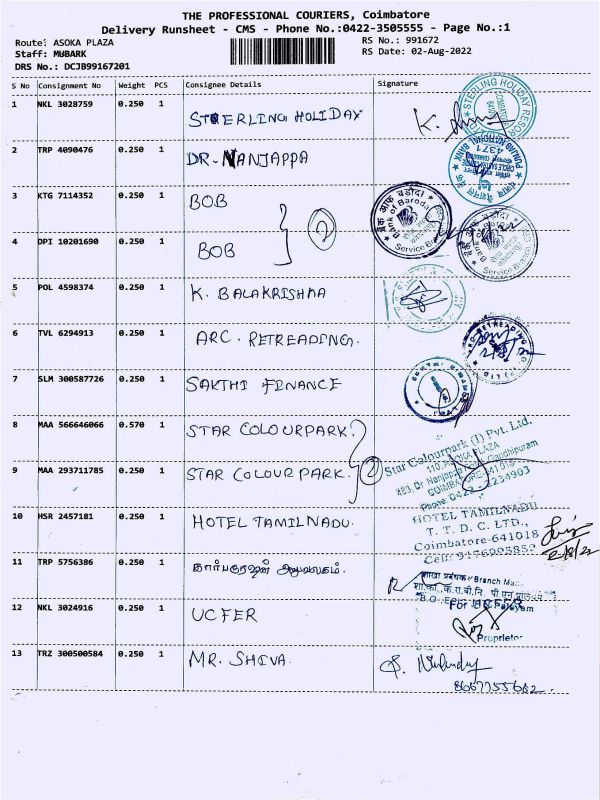 THE PROFESSIONAL COURIERS, Coimbatore
Delivery Runsheet - CMS - Phone No.:0422-3505555 - Page No.:1
Route: ASOKA PLAZA
RS No.: 991672
Staff: MUBARK
RS Date: 02-Aug-2022
DRS No.: DCJB99167201
S No Consignment No Weight PCS Consignee Details Signature
1 NKL 3028759 0.250 1 STERLING HOLIDAY
STERLING HOLIDAY RESOR
2 TRP 4090476 0.250 1 DR. NANJAPPA
PUNJAB NATIONAL BANK
4371
3 KTG 7114352 0.250 1 BOB
बैंक ऑफ बड़ौदा
Bank of Baroda
Service Branch
4 DPI 10201690 0.250 1 BOB
2
Service Branch
5 POL 4598374 0.250 1 K. BALAKRISHNA
6 TVL 6294913 0.250 1 ARC. RETREADING.
ARC RETREADING CO
7 SLM 300587726 0.250 1 SAKTHI FINANCE
8 MAA 566646066 0.570 1 STAR COLOURPARK.
9 MAA 293711785 0.250 1 STAR COLOUR PARK.
2
Star Colourpark (I) Pvt. Ltd.
110, ASOKA PLAZA
483, Dr Nanjappa Road, Gandhipuram
COIMBATORE-641018
Phone:0422-2234903
10 HSR 2457181 0.250 1 HOTEL TAMILNADU.
HOTEL TAMILNADU
T. T. D. C. LTD.,
Coimbatore-641018
2/8/22
11 TRP 5756386 0.250 1
शाखा प्रबंधक / Branch Ma
12 NKL 3024916 0.250 1 UCFER
For UCFER
Proprietor
13 TRZ 300500584 0.250 1 MR. SHIVA.